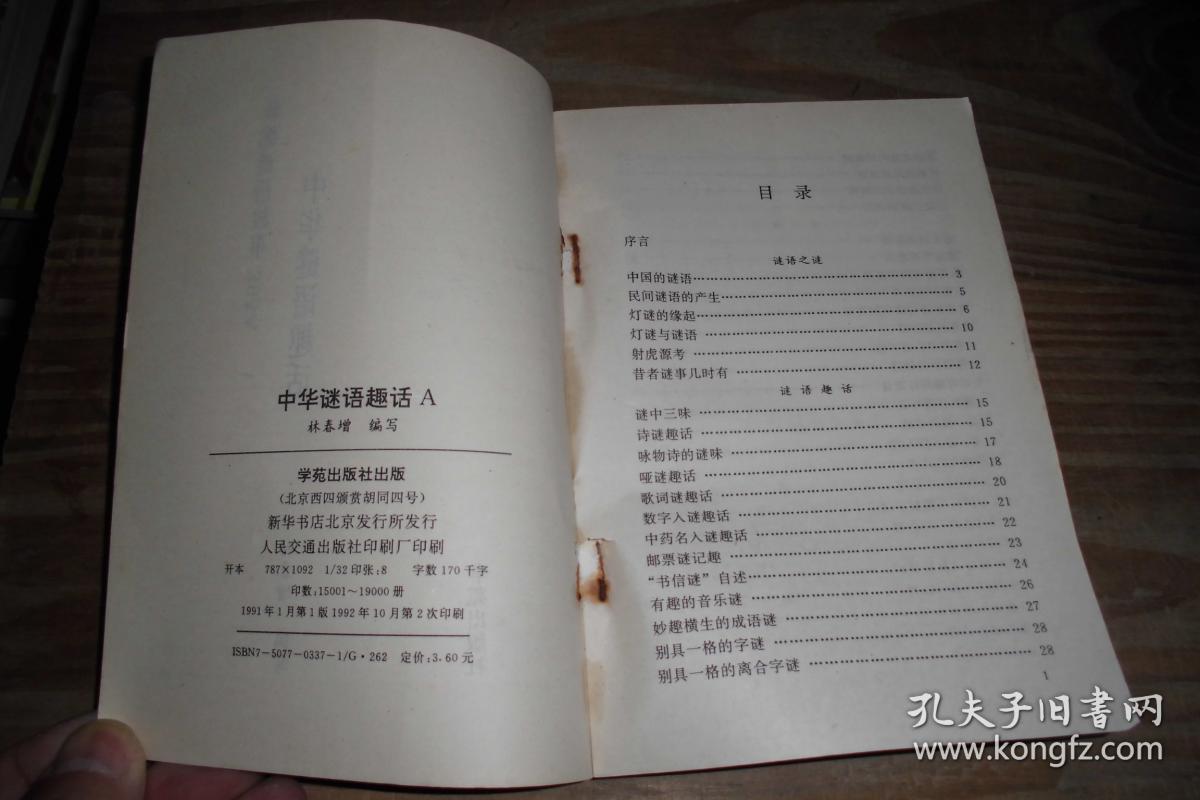 中华谜语趣话 A
林春增 编写
学苑出版社出版
(北京西四颁赏胡同四号)
新华书店北京发行所发行
人民交通出版社印刷厂印刷
开本 787×1092 1/32 印张:8 字数 170 千字
印数:15001~19000 册
1991 年 1 月第 1 版 1992 年 10 月第 2 次印刷
ISBN7-5077-0337-1/G·262 定价:3.60 元
目 录
序言
谜语之谜
中国的谜语……………………………………………… 3
民间谜语的产生………………………………………… 5
灯谜的缘起……………………………………………… 6
灯谜与谜语 …………………………………………… 10
射虎源考 ……………………………………………… 11
昔者谜事几时有 ……………………………………… 12
谜 语 趣 话
谜中三味 ……………………………………………… 15
诗谜趣话 ……………………………………………… 15
咏物诗的谜味 ………………………………………… 17
哑谜趣话 ……………………………………………… 18
歌词谜趣话 …………………………………………… 20
数字入谜趣话 ………………………………………… 21
中药名入谜趣话 ……………………………………… 22
邮票谜记趣 …………………………………………… 23
“书信谜”自述………………………………………… 24
有趣的音乐谜 ………………………………………… 26
妙趣横生的成语谜 …………………………………… 27
别具一格的字谜 ……………………………………… 28
别具一格的离合字谜 ………………………………… 28
1
孔夫子旧书网
www.kongfz.com